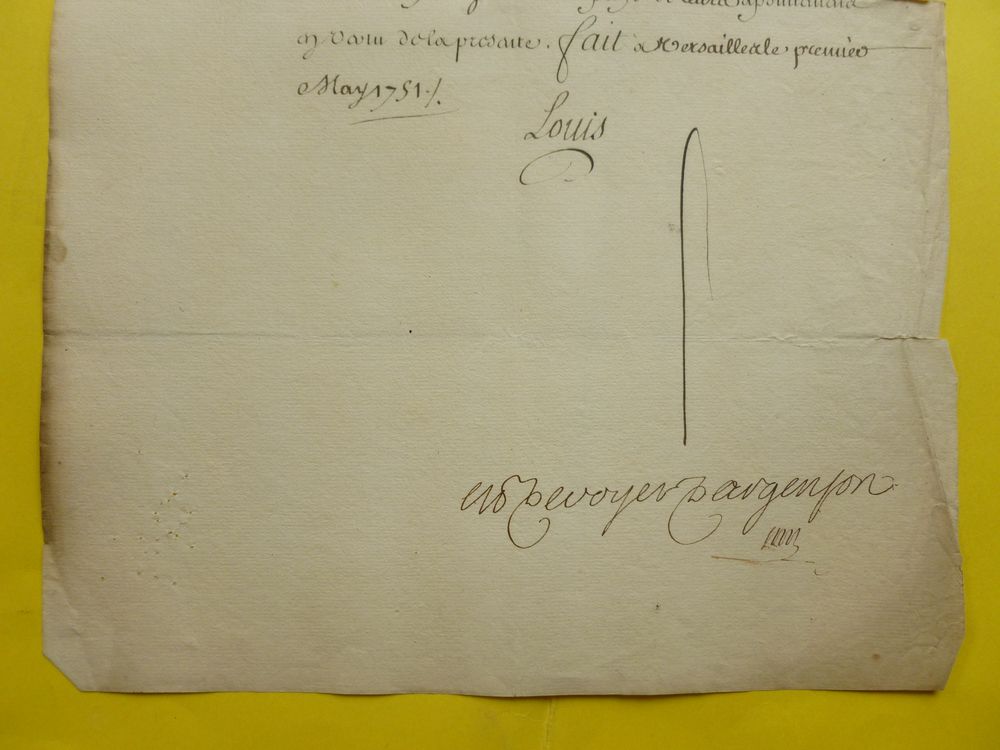 en vertu de la presente. fait a Versailles le premier
May 1751 ./.
Louis
M de voyer Dargenson